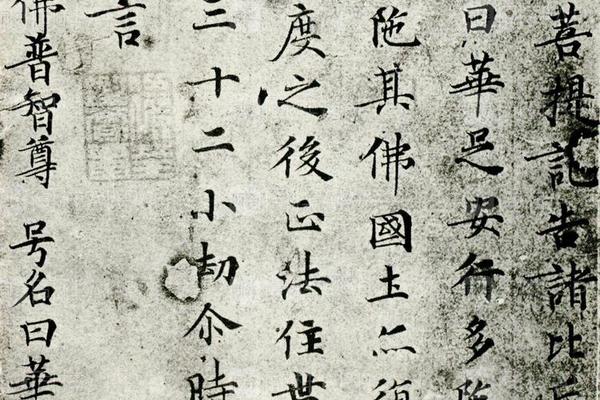 菩提記告諸比丘
曰華足安行多陁
陁其佛國土亦復
度之後正法住世
三十二小劫尒時
言
佛普智尊 号名曰華